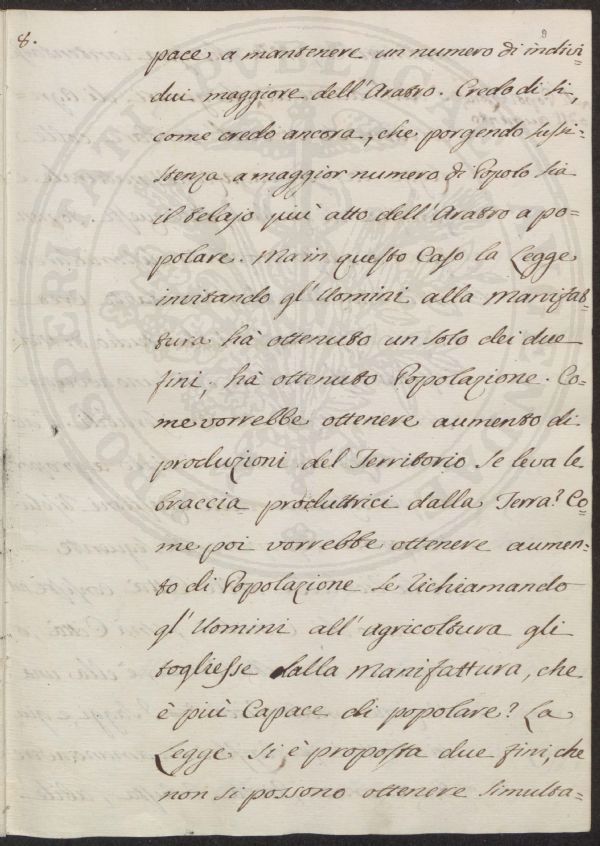 8.
pace a mantenere un numero di indivi=
dui maggiore dell'Aratro. Credo di si,
come credo ancora, che porgendo sussi=
stenza a maggior numero di Popolo sia
il telajo più atto dell'Aratro a po=
polare. Ma in questo Caso la Legge
invitando gl'Uomini alla manifat=
tura hà ottenuto un solo dei due
fini, hà ottenuto Popolazione. Co=
me vorrebbe ottenere aumento di
produzioni del Territorio se leva le
braccia produttrici dalla Terra? Co=
me poi vorrebbe ottenere aumen=
to di Popolazione se richiamando
gl'Uomini all'agricoltura gli
togliesse dalla manifattura, che
è più Capace di popolare? La
Legge si è proposta due fini, che
non si possono ottenere simulta=